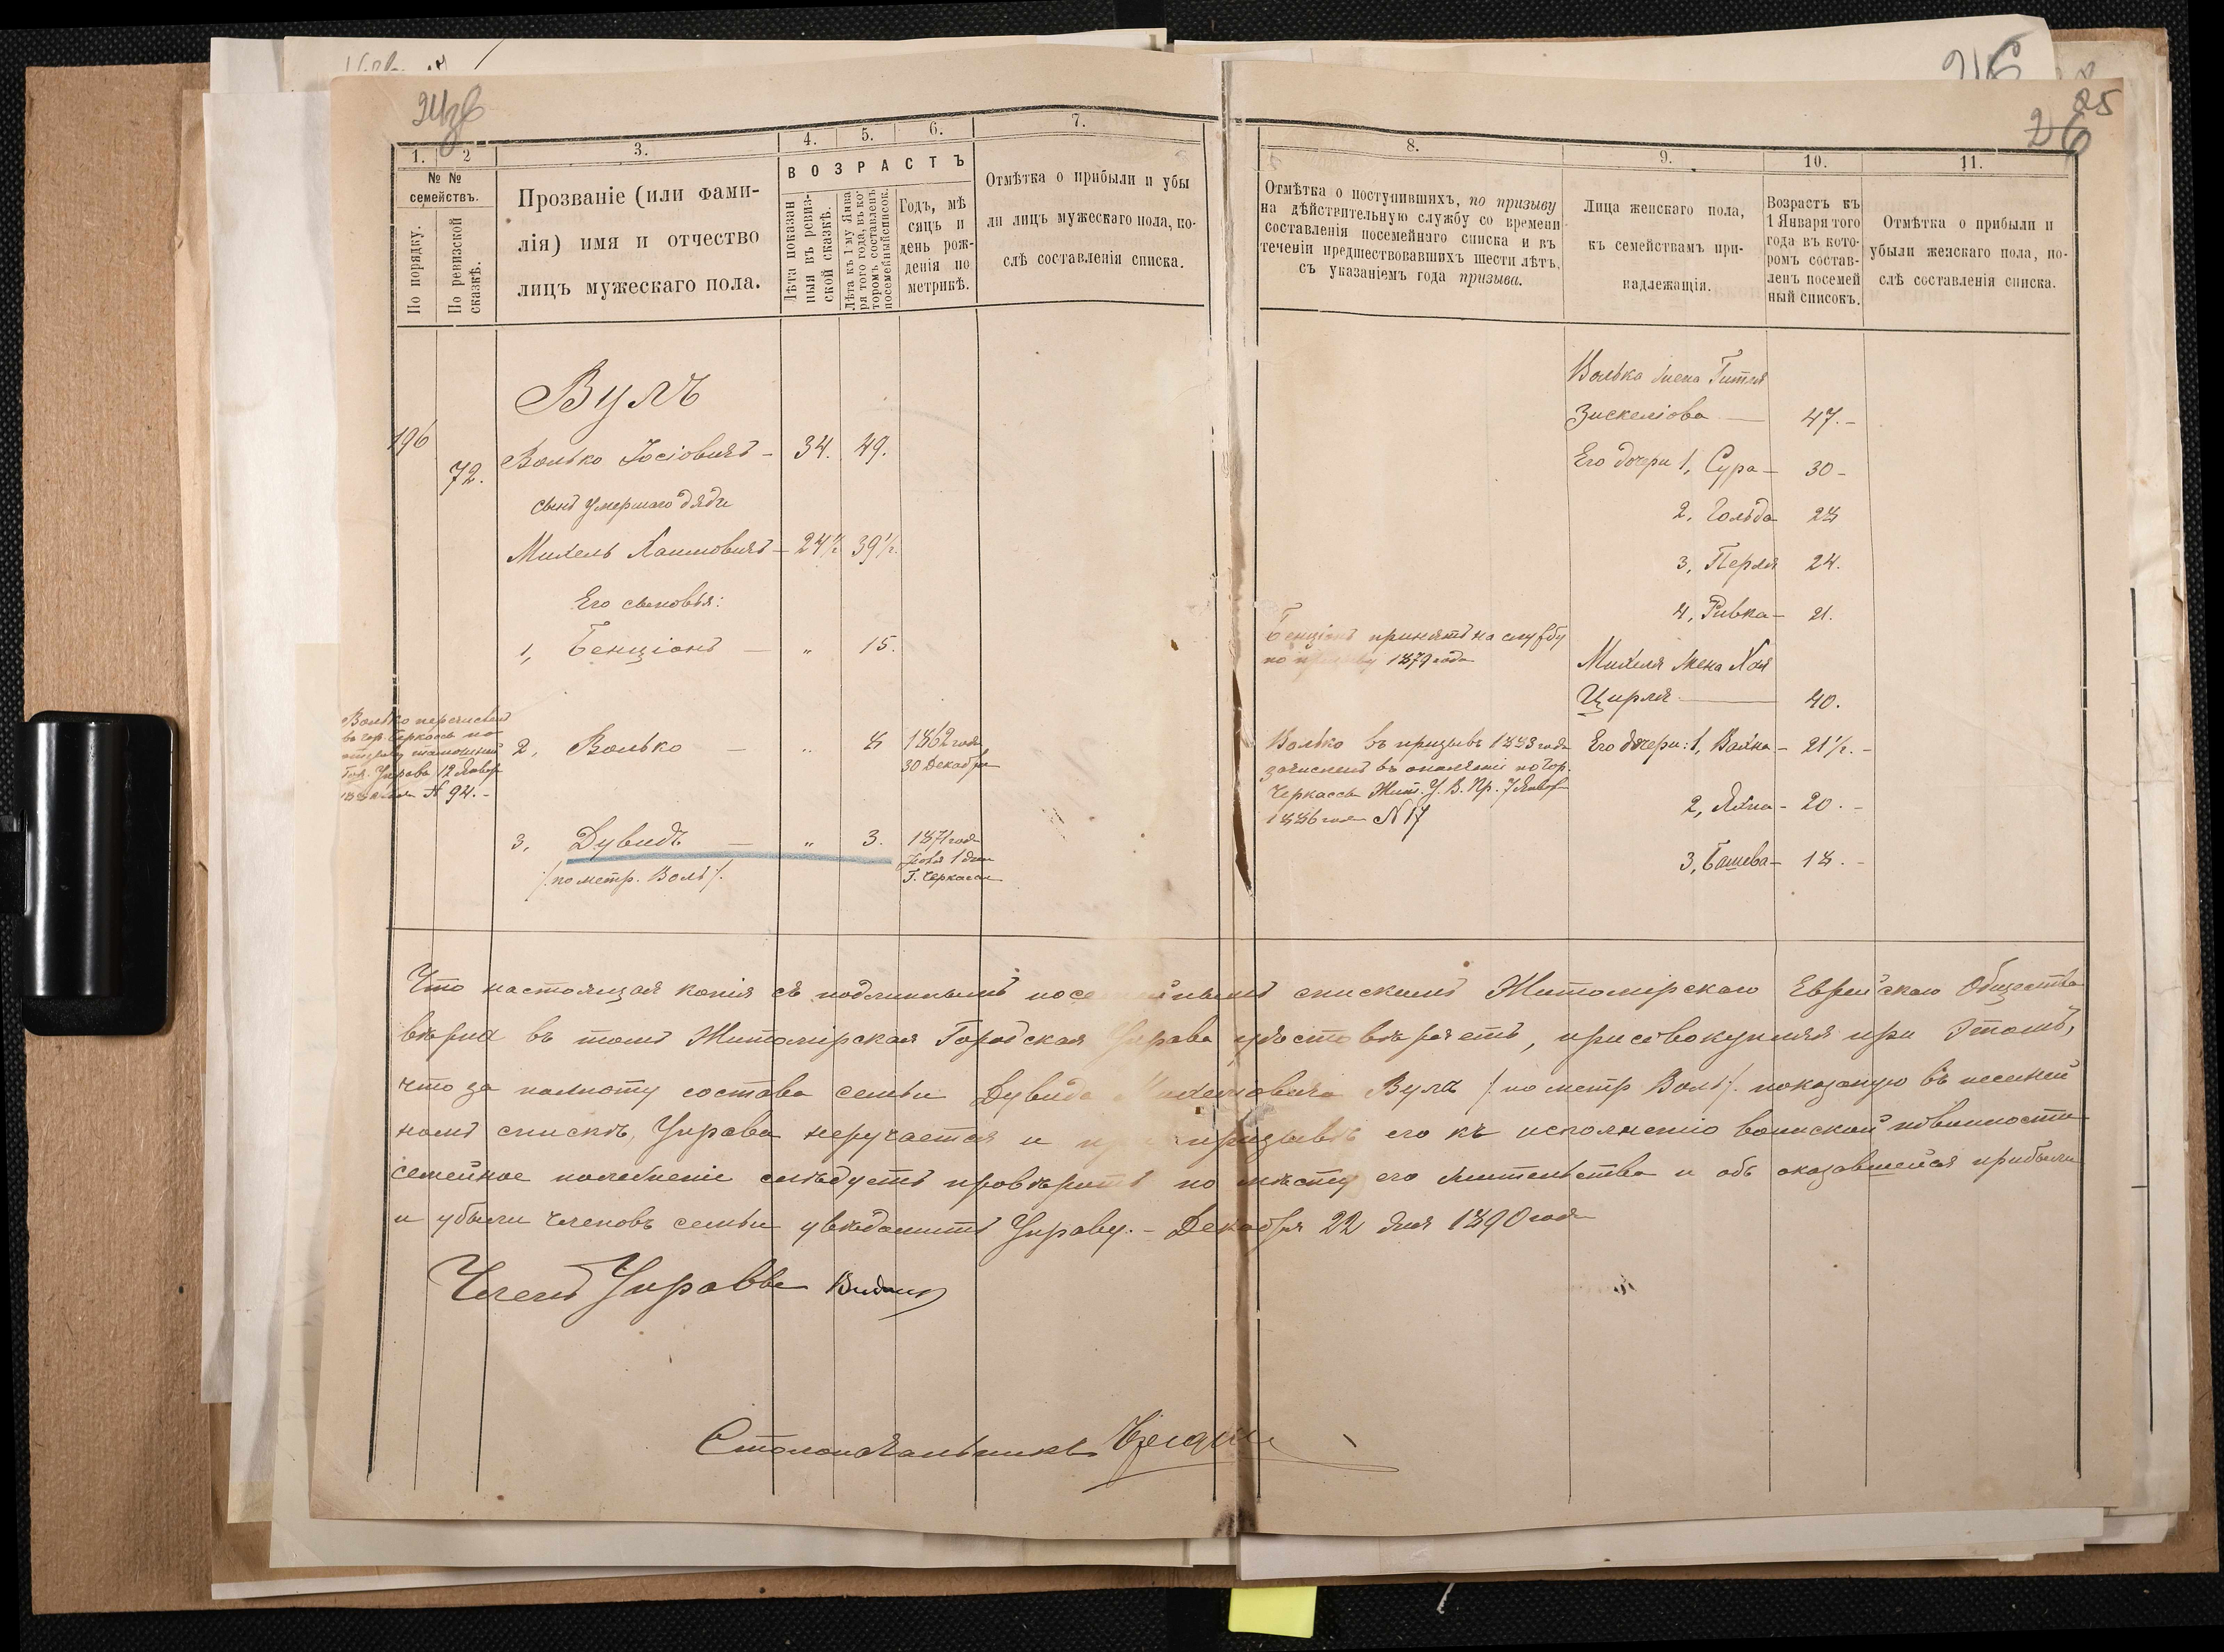 26
25
26
1. 2 3. 4. 5. 6. 7.
№ №
семействъ.
По порядку.
По ревизской
сказкѣ.
Прозваніе (или фами-
лія) имя и отчество
лицъ мужескаго пола.
ВОЗРАСТЪ
Лѣта показан
ныя въ ревиз-
ской сказкѣ.
Лѣта къ 1 му Янва
ря того года, въ ко-
торомъ составленъ
посемейный списокъ.
Годъ, мѣ
сяцъ и
день рож-
денія по
метрикѣ.
Отмѣтка о прибыли и убы
ли лицъ мужескаго пола, по-
слѣ составленія списка.
Вулъ
196
72. Волько Іосіовичъ - 34. 49.
сынъ умершаго дяди
Михель Хаимовичъ - 24½ 39½.
Его сыновья:
1, Бенціонъ — " 15.
Волько перечисленъ
въ гор. Черкассы по
Гор. Управа 12 Января
№ 94. -
2, Волько — " 8 1862 года
30 Декабря
3, Дувидъ — " 3. 1871 года
1 дня
Г. Черкассы
/. по метр. Воль /.
8. 9. 10. 11.
Отмѣтка о поступившихъ, по призыву
на дѣйствительную службу со времени
составленія посемейнаго списка и въ
теченіи предшествовавшихъ шести лѣтъ,
съ указаніемъ года призыва.
Лица женскаго пола,
къ семействамъ при-
надлежащія.
Возрастъ къ
1 Января того
года въ кото-
ромъ состав-
ленъ посемей
ный списокъ.
Отмѣтка о прибыли и
убыли женскаго пола, по-
слѣ составленія списка.
Волька жена Гитля
Зискеліова — 47. -
Его дочери 1, Сура - 30 -
2, Гольда 28
3, Перля 24.
4, Ривка - 21.
Бенціонъ принятъ на службу
по призыву 1879 года
Михеля жена Хая
Цирля — 40.
Волько въ призывъ 1883 года
зачисленъ въ ополченіе по гор.
Черкассы Жит. У. В. Пр. 7 Января
1886 года № 17
Его дочери: 1, Вахна - 21½. -
2, Яхна - 20. -
3, Башева - 18. -
Что настоящая копія съ подлиннымъ посемейнымъ спискомъ Житомірскаго Еврейскаго Общества
вѣрна въ томъ Житомірская Городская Управа удостовѣряетъ, присовокупляя при этомъ,
что за полноту состава семьи Дувида Михелiовича Вула /. по метр Воль /. показаную въ посемей
номъ спискѣ, Управа неручается и при призывѣ его къ исполненію воинской повинности
семейное положеніе слѣдуетъ провѣрить по мѣсту его жительства и объ оказавшейся прибыли
и убыли членовъ семьи увѣдомить Управу. - Декабря 22 дня 1890 года
Членъ Управы
Столоначальникъ